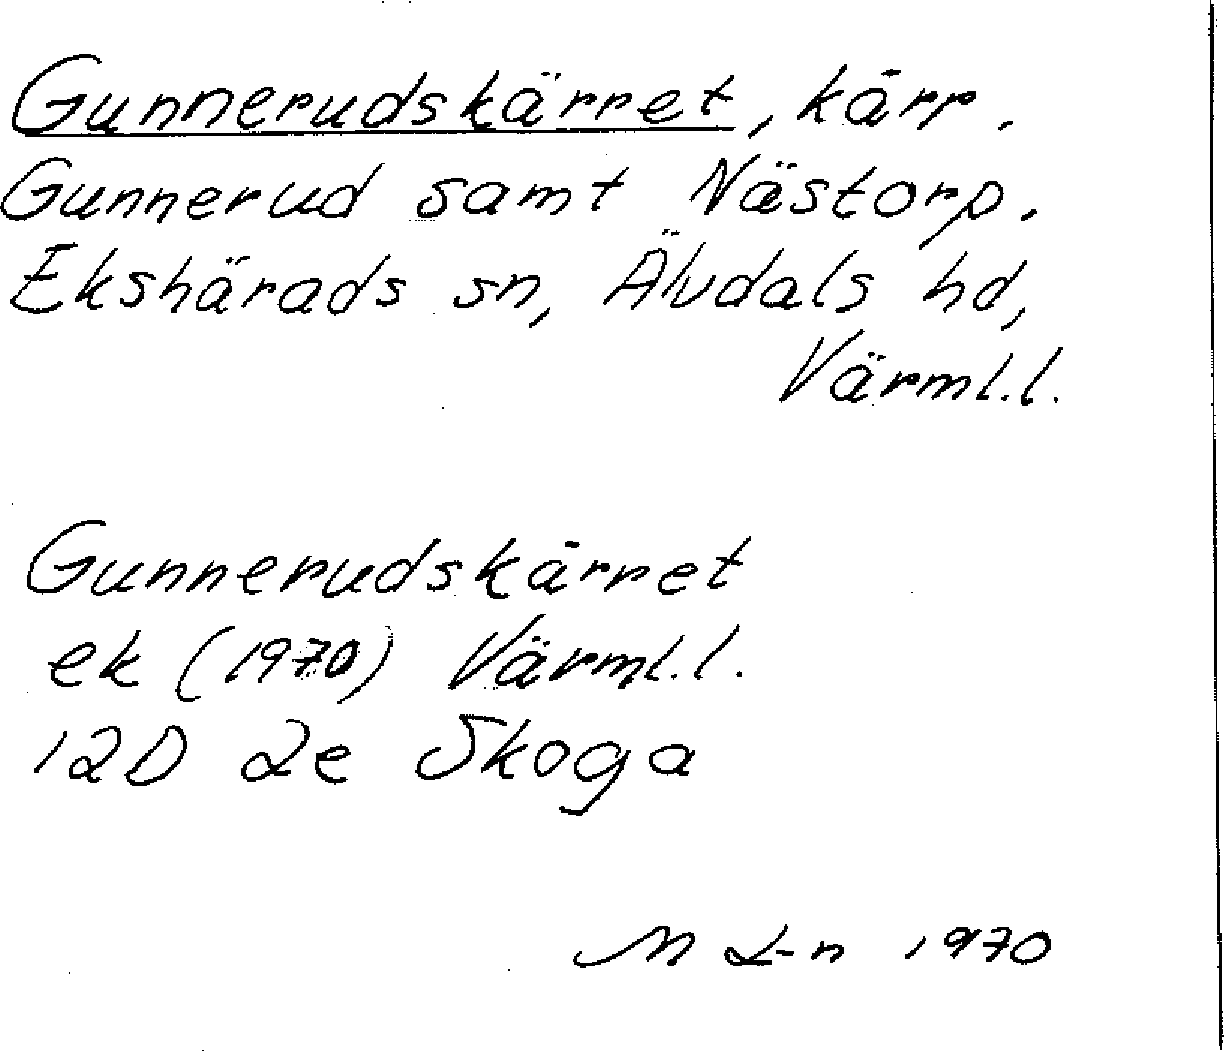 Gunnerudskärret, kärr.
Gunnerud samt Nästorp.
Ekshärads sn, Älvdals hd,
Värml.l.
Gunnerudskärret
ek (1970) Värml.l.
12D 2e Skoga
M L-n 1970